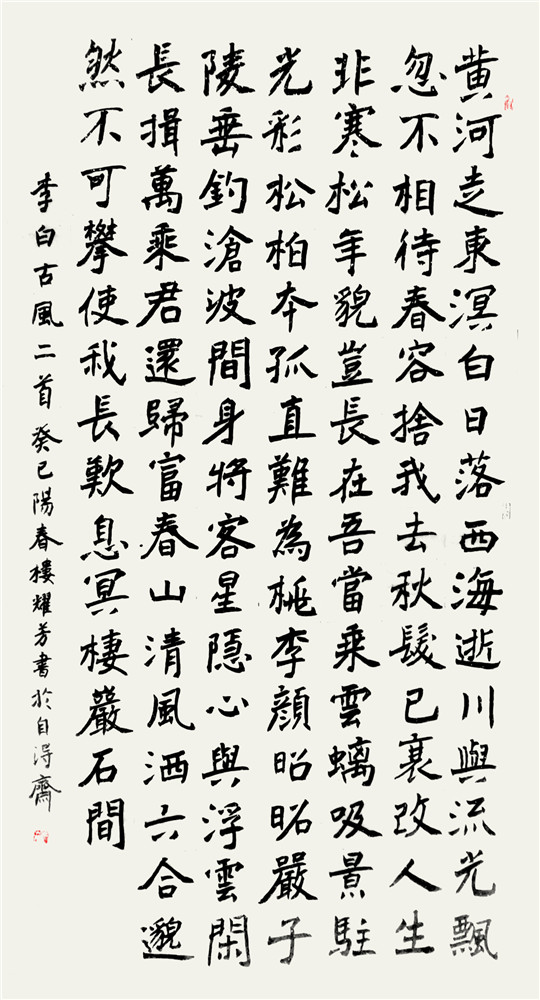 黄河走東溟白日落西海逝川與流光飄
忽不相待春容捨我去秋髮已衰改人生
非寒松年貌豈長在吾當乘雲螭吸景駐
光彩松柏本孤直難為桃李顔昭昭嚴子
陵垂釣滄波間身将客星隱心與浮雲閑
長揖萬乘君還歸富春山清風洒六合邈
然不可攀使我長歎息冥棲嚴石間
李白古風二首癸巳陽春樓耀芳書於自得齋